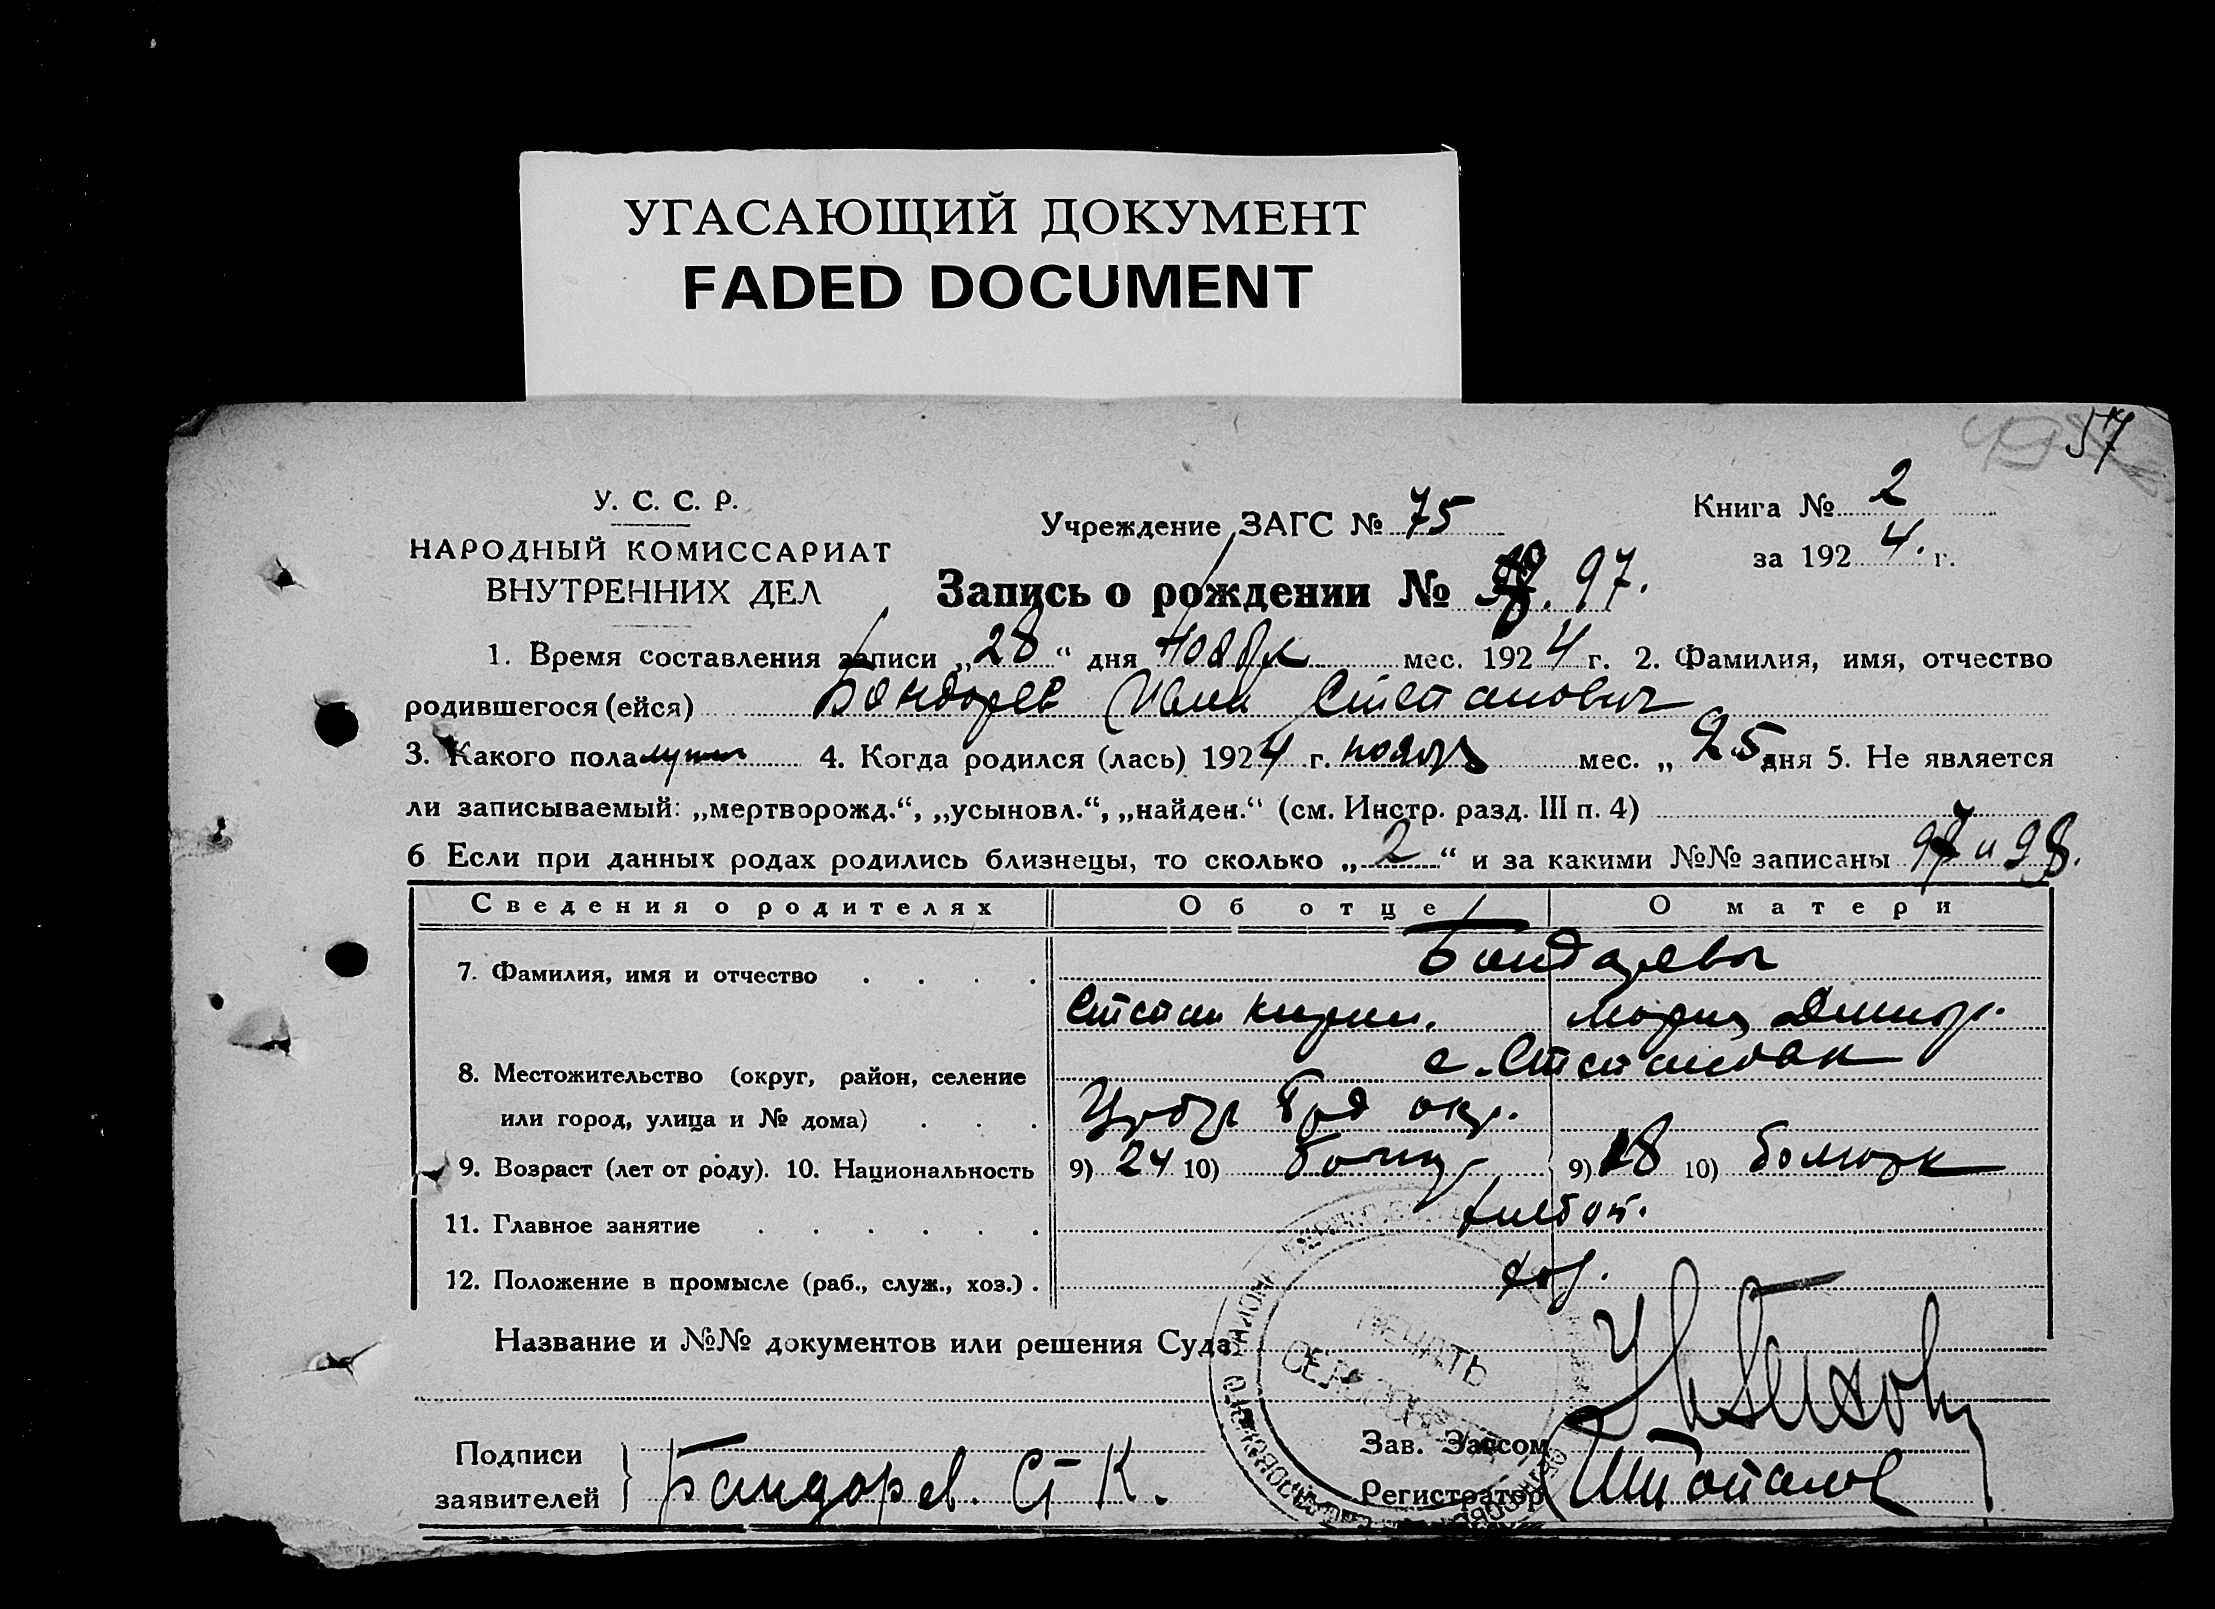 УГАСАЮЩИЙ ДОКУМЕНТ
FADED DOCUMENT
57
У. С. С. Р.
НАРОДНЫЙ КОМИССАРИАТ
ВНУТРЕННИХ ДЕЛ
Учреждение ЗАГС № 75
Книга № 2
за 1924. г.
Запись о рождении № 97.
1. Время составления записи „28“ дня Ноября мес. 1924 г. 2. Фамилия, имя, отчество
родившегося (ейся) Бондарев Иван Степанович
3. Какого пола мужск 4. Когда родился (лась) 1924 г. ноябрь мес. „25 дня 5. Не является
ли записываемый: „мертворожд.“, „усыновл.“, „найден.“ (см. Инстр. разд. III п. 4)
6 Если при данных родах родились близнецы, то сколько „2“ и за какими №№ записаны 97 и 98.
Сведения о родителях Об отце О матери
7. Фамилия, имя и отчество Бондаревы
Степан Мария
8. Местожительство (округ, район, селение с.
или город, улица и № дома) окр.
9. Возраст (лет от роду). 10. Национальность 9) 24 10) 9) 18 10)
11. Главное занятие хлебоп.
12. Положение в промысле (раб., служ., хоз.) хоз.
Название и №№ документов или решения Суда
ПЕЧАТЬ
Подписи
заявителей Бандарев. Ст К.
Зав. Загсом
Регистратор